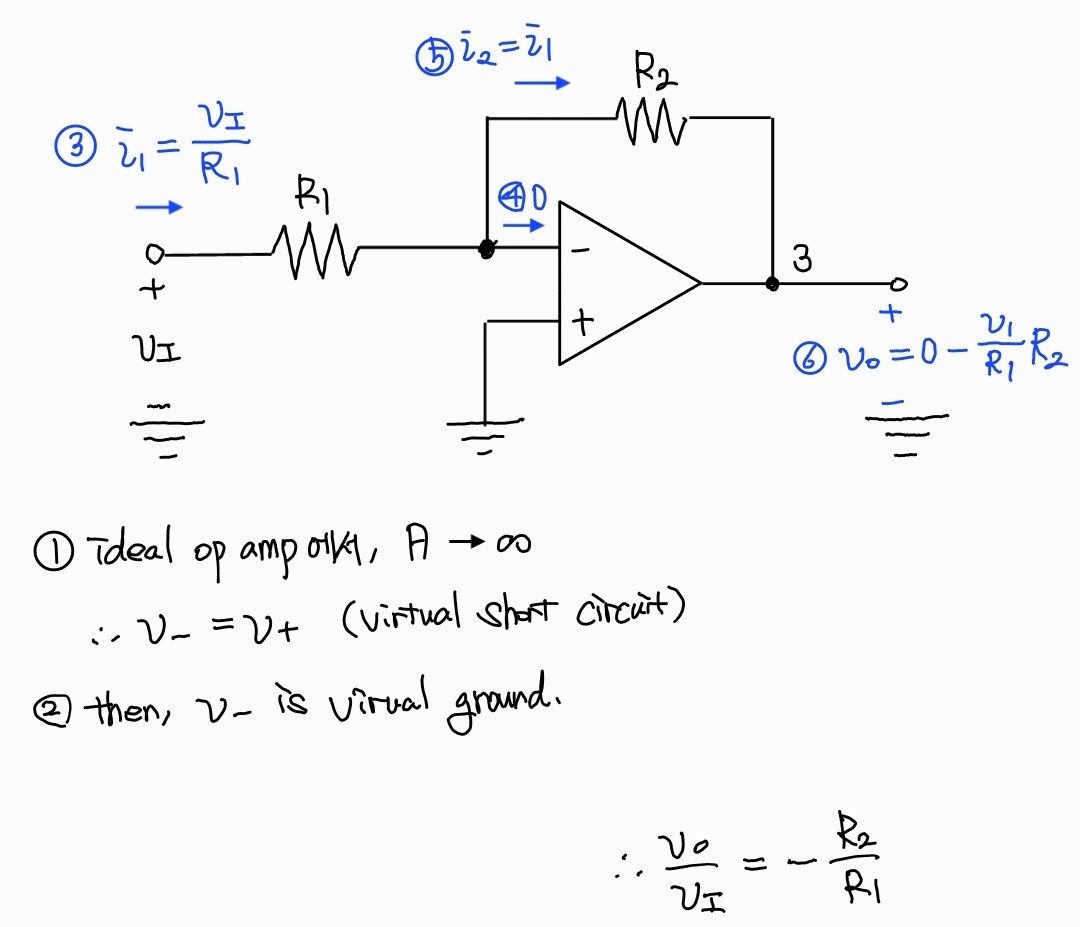 ⑤ i₂ = i₁
R₂
③ i₁ = v_I / R₁
R₁
④ 0
−
+
3
+
v_I
−
+
⑥ v₀ = 0 − v₁/R₁ R₂
−
① ideal op amp에서, A → ∞
∴ v₋ = v₊ (virtual short circuit)
② then, v₋ is virual ground.
∴ v₀ / v_I = − R₂ / R₁